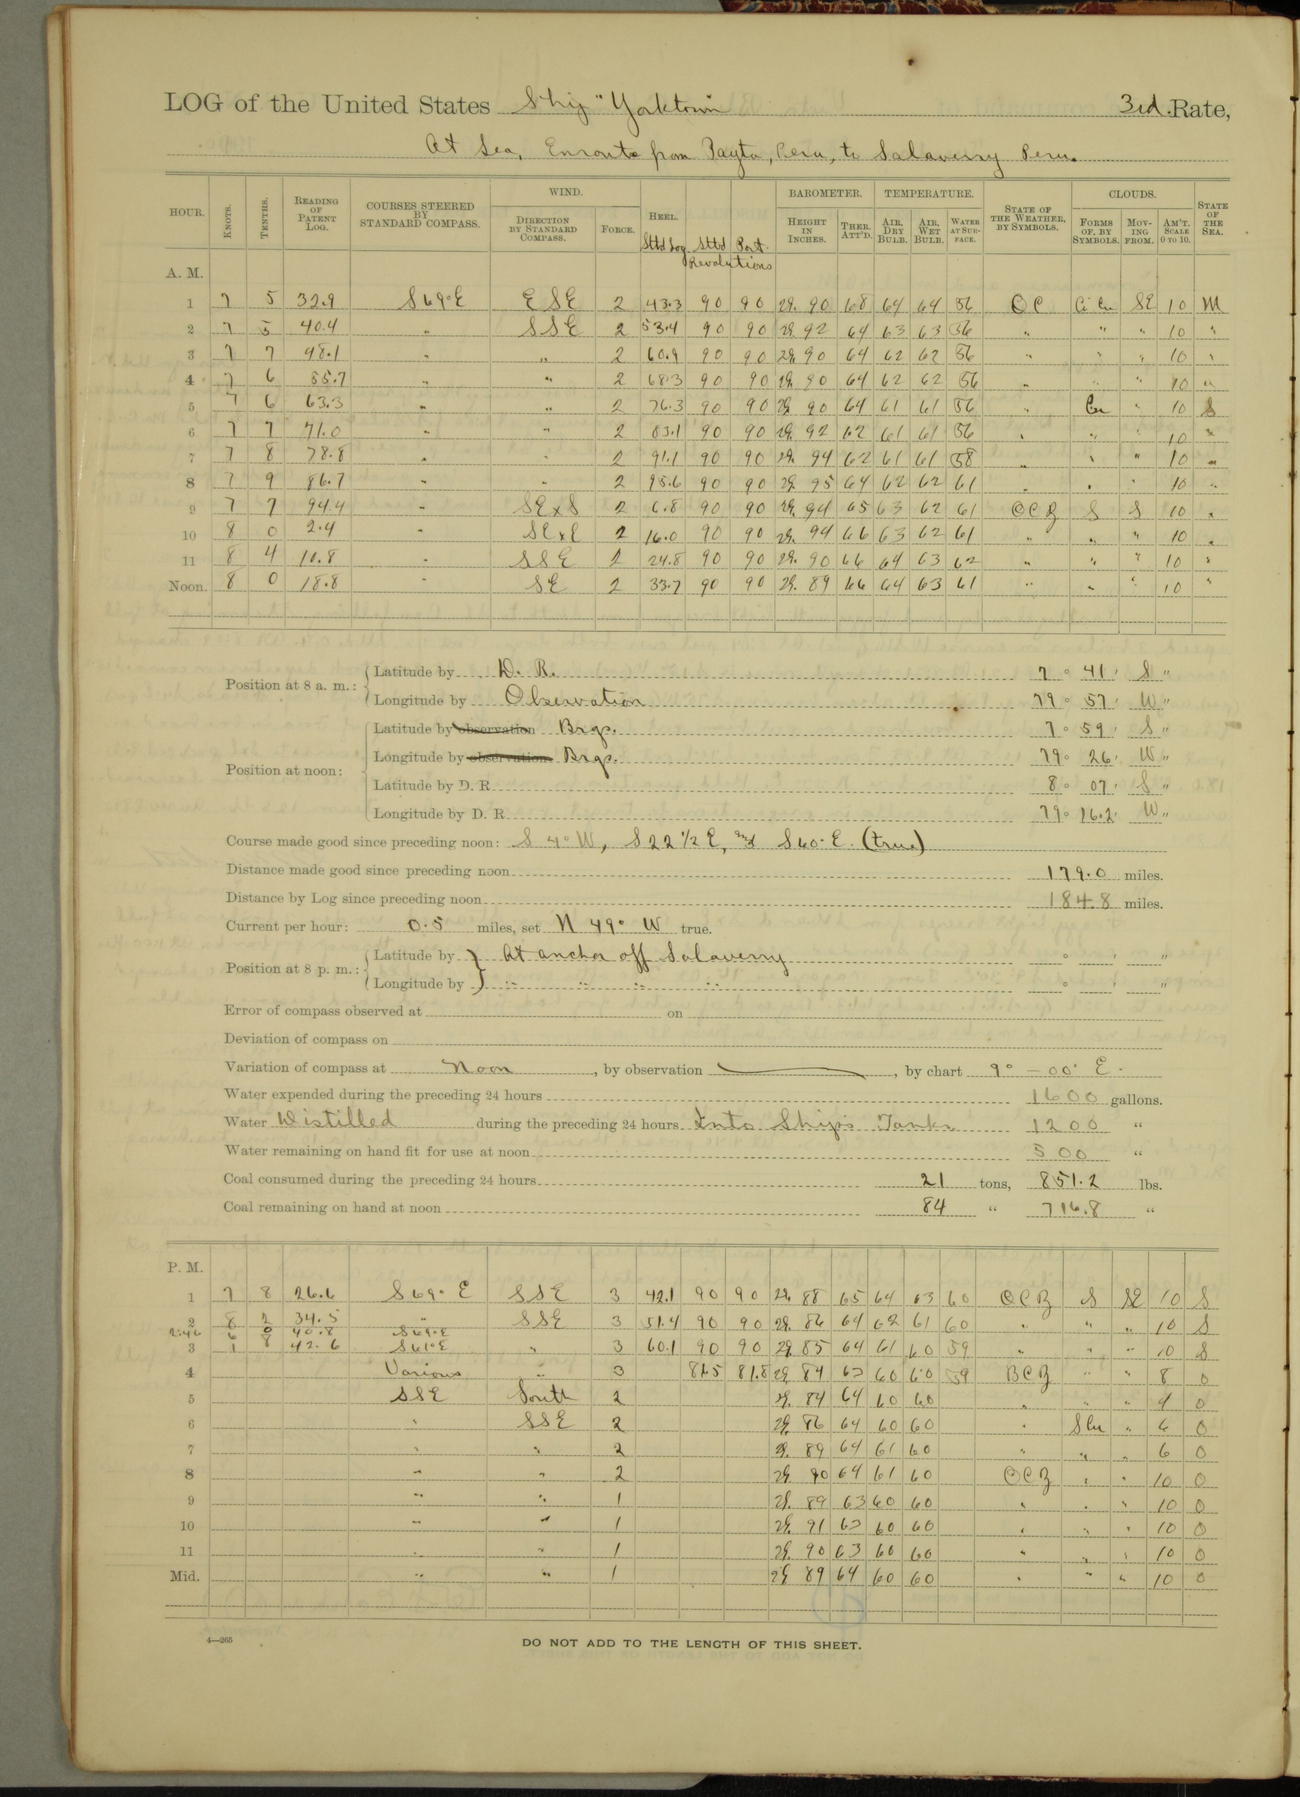 LOG of the United States Ship "Yorktown" 3rd Rate,
At Sea, Enroute from Payta, Peru, to Salaverry Peru.
HOUR. KNOTS. TENTHS. READING OF PATENT LOG. COURSES STEERED BY STANDARD COMPASS. WIND. DIRECTION BY STANDARD COMPASS. FORCE. HEEL. BAROMETER. HEIGHT IN INCHES. THER. ATT'D. TEMPERATURE. AIR, DRY BULB. AIR, WET BULB. WATER AT SURFACE. STATE OF THE WEATHER, BY SYMBOLS. CLOUDS. FORMS OF, BY SYMBOLS. MOVING FROM. AM'T. SCALE 0 TO 10. STATE OF THE SEA.
Stbd Log Stbd Port
Revolutions
A. M.
1 7 5 32.9 S 69° E ESE 2 43.3 90 90 29. 90 68 64 64 56 OC Ci Cu SE 10 M
2 7 5 40.4 " SSE 2 53.4 90 90 29. 92 64 63 63 56 " " " 10 "
3 7 7 48.1 " " 2 60.9 90 90 29. 90 64 62 62 56 " " " 10 "
4 7 6 55.7 " " 2 68.3 90 90 29. 90 64 62 62 56 " " " 10 "
5 7 6 63.3 " " 2 76.3 90 90 29. 90 64 61 61 56 " Cu " 10 S
6 7 7 71.0 " " 2 83.1 90 90 29. 92 62 61 61 56 " " " 10 "
7 7 8 78.8 " " 2 91.1 90 90 29. 94 62 61 61 58 " " " 10 "
8 7 9 86.7 " " 2 98.6 90 90 29. 95 64 62 62 61 " " " 10 "
9 7 7 94.4 " SExS 2 6.8 90 90 29. 94 65 63 62 61 OCZ S S 10 "
10 8 0 2.4 " SExE 2 16.0 90 90 29. 94 66 63 62 61 " " " 10 "
11 8 4 10.8 " SSE 2 24.8 90 90 29. 90 66 64 63 62 " " " 10 "
Noon. 8 0 18.8 " SE 2 33.7 90 90 29. 89 66 64 63 61 " " " 10 "
Position at 8 a. m.:
Latitude by D. R. 7 ° 41 ' S "
Longitude by Observation 79 ° 57 ' W "
Position at noon:
Latitude by observation Brgs. 7 ° 59 ' S "
Longitude by observation Brgs. 79 ° 26 ' W "
Latitude by D. R. 8 ° 07 ' S "
Longitude by D. R. 79 ° 16.2 ' W "
Course made good since preceding noon: S 4° W, S 22 1/2 E, and S 60° E. (true)
Distance made good since preceding noon 179.0 miles.
Distance by Log since preceding noon 184.8 miles.
Current per hour: 0.5 miles, set N 49° W true.
Position at 8 p. m.:
Latitude by At anchor off Salaverry ° ' "
Longitude by " " " " ° ' "
Error of compass observed at on
Deviation of compass on
Variation of compass at Noon, by observation, by chart 9° - 00' E.
Water expended during the preceding 24 hours 1600 gallons.
Water Distilled during the preceding 24 hours Into Ship's Tanks 1200 "
Water remaining on hand fit for use at noon 500 "
Coal consumed during the preceding 24 hours 21 tons, 851.2 lbs.
Coal remaining on hand at noon 84 " 716.8 "
P. M.
1 7 8 26.6 S 69° E SSE 3 42.1 90 90 29. 88 65 64 63 60 OCZ S SE 10 S
2 8 2 34.5 " SSE 3 51.4 90 90 29. 86 64 62 61 60 " " " 10 S
2:46 6 0 40.8 S 69° E
3 1 8 42.6 S 61° E " 3 60.1 90 90 29. 85 64 61 60 59 " " " 10 S
4 Various " 3 81.5 81.8 29. 84 63 60 60 59 BCZ " " 8 0
5 SSE South 2 29. 84 64 60 60 " " " 9 0
6 " SSE 2 29. 86 64 60 60 " S Cu " 6 0
7 " " 2 29. 89 64 61 60 " " " 6 0
8 " " 2 29. 90 64 61 60 OCZ " " 10 0
9 " " 1 29. 89 63 60 60 " " " 10 0
10 " " 1 29. 91 63 60 60 " " " 10 0
11 " " 1 29. 90 63 60 60 " " " 10 0
Mid. " " 1 29. 89 64 60 60 " " " 10 0
4—265
DO NOT ADD TO THE LENGTH OF THIS SHEET.